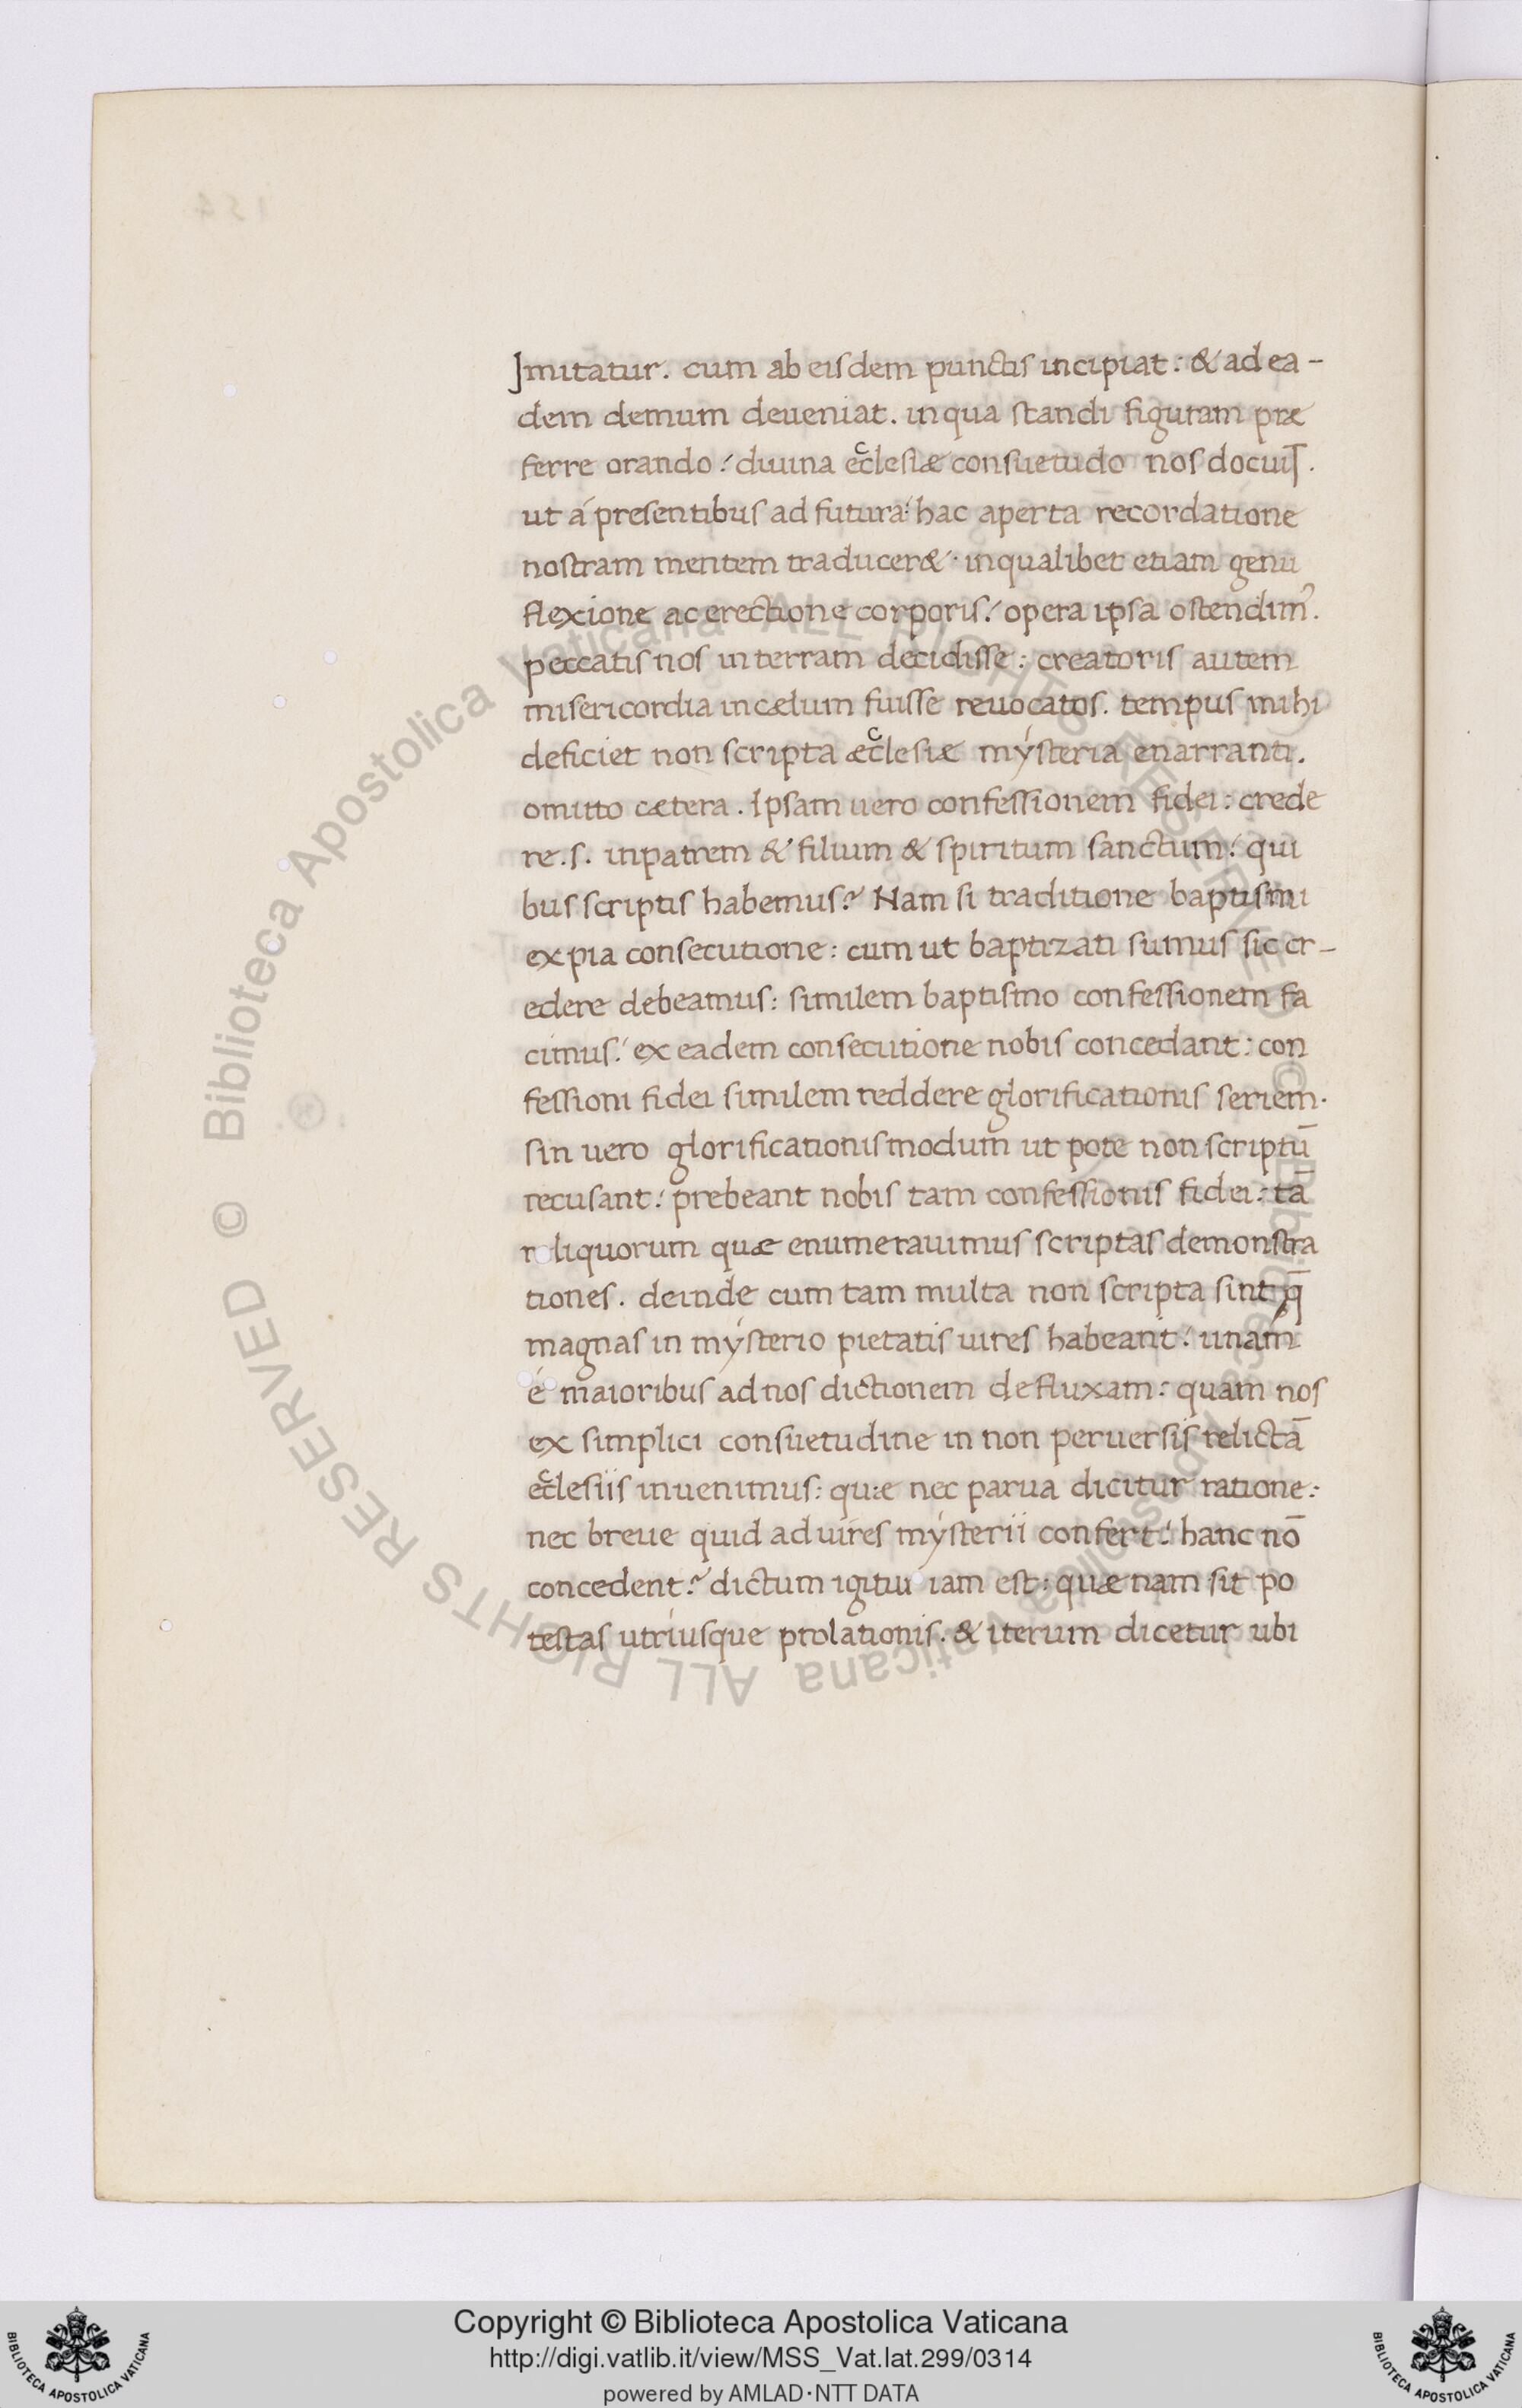 Imitatur. cum ab eisdem punctis incipiat: & ad ea-
dem demum deueniat. in qua standi figuram præ
ferre orando: diuina ecclesiæ consuetudo nos docuit.
ut á presentibus ad futura: hac aperta recordatione
nostram mentem traducer&. in qualibet etiam genu
flexione ac erectione corporis: opera ipsa ostendimꝰ.
peccatis nos in terram decidisse: creatoris autem
misericordia in cælum fuisse reuocatos. tempus mihi
deficiet non scripta æcclesiæ mýsteria enarranti.
omitto cætera. Ipsam uero confessionem fidei: crede
re .s. in patrem & filium & spiritum sanctum: qui
bus scriptis habemus? Nam si traditione baptismi
ex pia consecutione: cum ut baptizati sumus sic cr-
edere debeamus: similem baptismo confessionem fa
cimus: ex eadem consecutione nobis concedant: con
fessioni fidei similem reddere glorificationis seriem.
sin uero glorificationis modum ut pote non scriptū
recusant: prebeant nobis tam confessionis fidei: tā
reliquorum quæ enumerauimus scriptas demonstra
tiones. deinde cum tam multa non scripta sint q̄
magnas in mýsterio pietatis uires habeant: unam
é maioribus ad nos dictionem defluxam: quam nos
ex simplici consuetudine in non peruersis relictā
ecclesiis inuenimus: quæ nec parua dicitur ratione:
nec breue quid ad uires mýsterii confert: hanc nō
concedent? dictum igitur iam est: quæ nam sit po
testas utriusque prolationis. & iterum dicetur ubi
154
© Biblioteca Apostolica Vaticana ALL RIGHTS RESERVED © Biblioteca Apostolica Vaticana ALL RIGHTS RESERVED
Copyright © Biblioteca Apostolica Vaticana
http://digi.vatlib.it/view/MSS_Vat.lat.299/0314
powered by AMLAD·NTT DATA
BIBLIOTECA APOSTOLICA VATICANA
BIBLIOTECA APOSTOLICA VATICANA